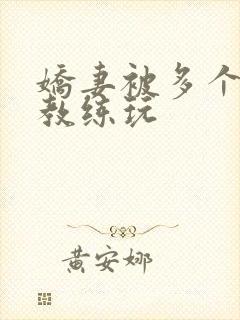 嬌妻被多个
教练玩
黄安娜